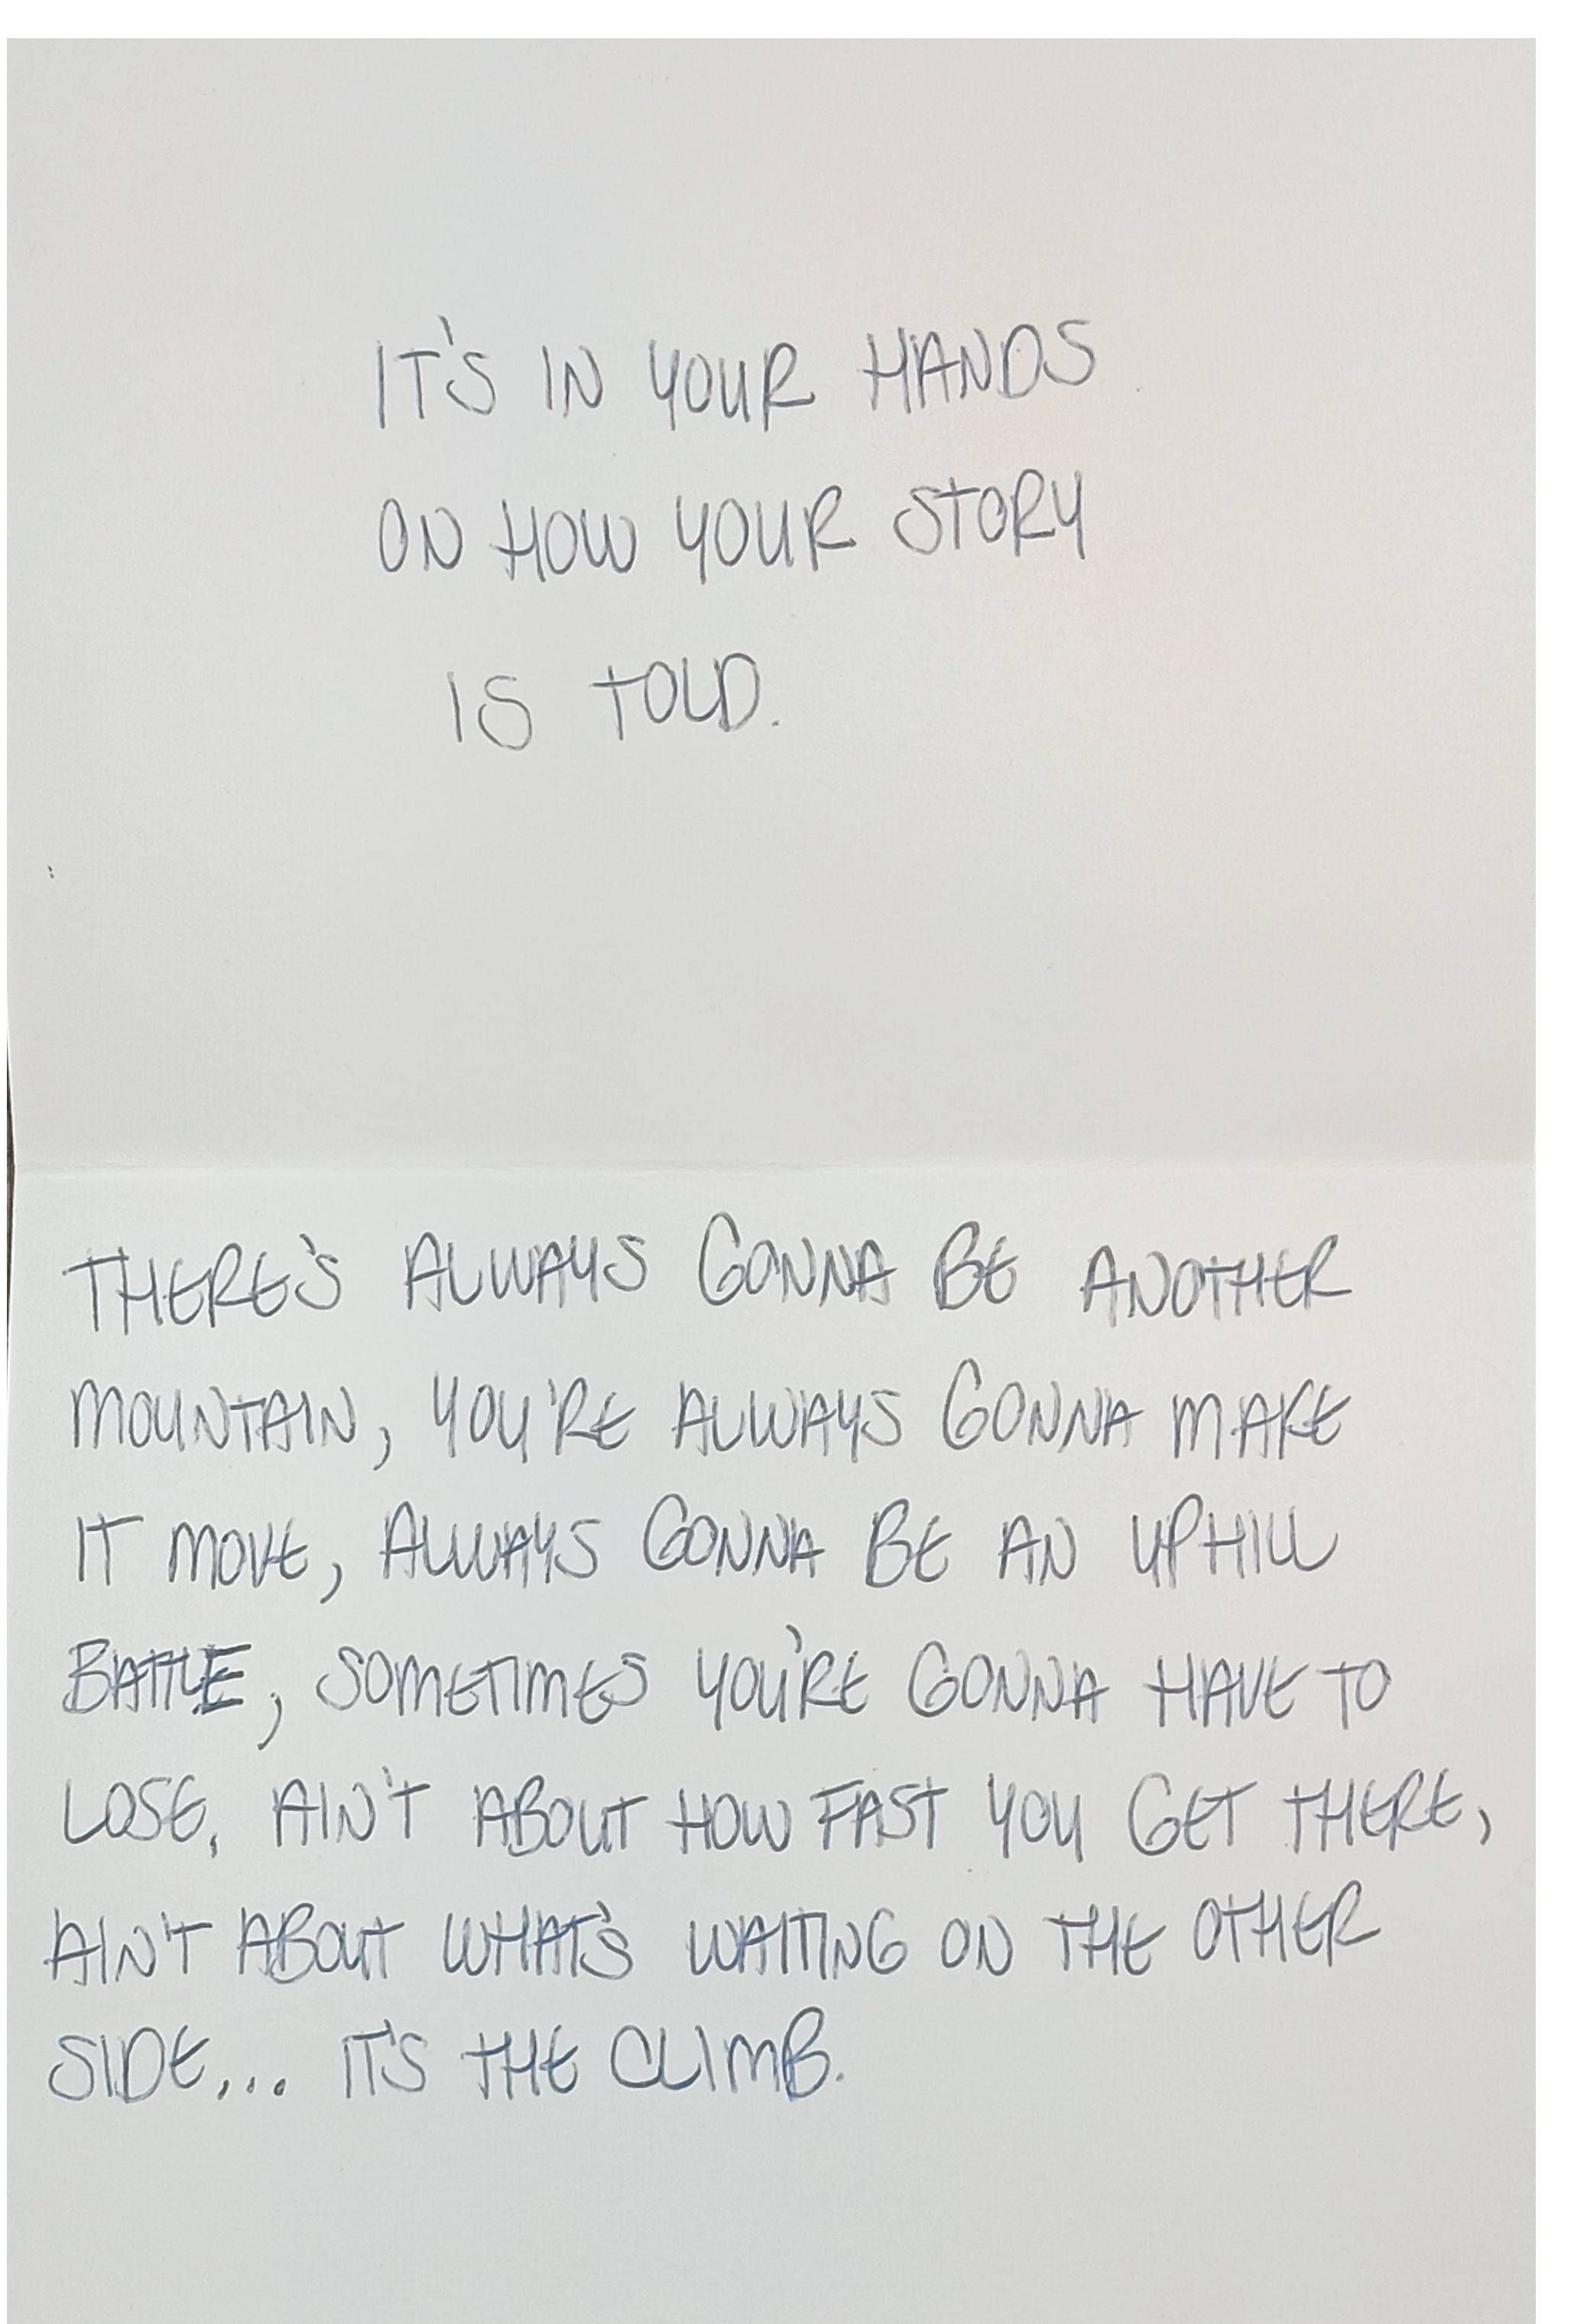 IT'S IN YOUR HANDS
ON HOW YOUR STORY
IS TOLD.
THERE'S ALWAYS GONNA BE ANOTHER
MOUNTAIN, YOU'RE ALWAYS GONNA MAKE
IT MOVE, ALWAYS GONNA BE AN UPHILL
BATTLE, SOMETIMES YOU'RE GONNA HAVE TO
LOSE, AIN'T ABOUT HOW FAST YOU GET THERE,
AIN'T ABOUT WHAT'S WAITING ON THE OTHER
SIDE... IT'S THE CLIMB.